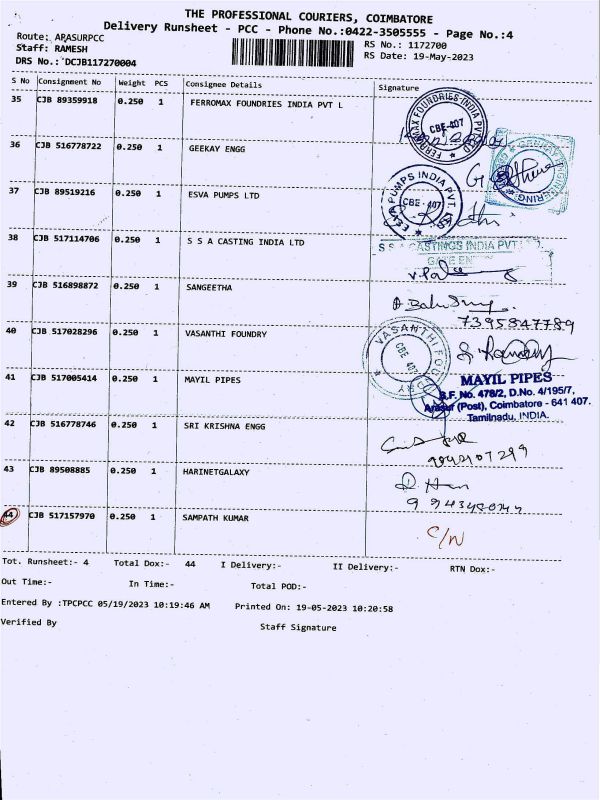 THE PROFESSIONAL COURIERS, COIMBATORE
Delivery Runsheet - PCC - Phone No.:0422-3505555 - Page No.:4
Route: ARASURPCC
RS No.: 1172700
Staff: RAMESH
RS Date: 19-May-2023
DRS No.: DCJB117270004
S No Consignment No Weight PCS Consignee Details Signature
35 CJB 89359918 0.250 1 FERROMAX FOUNDRIES INDIA PVT L
FERROMAX FOUNDRIES INDIA PVT
CBE-407
36 CJB 516778722 0.250 1 GEEKAY ENGG
ENGINEERING
37 CJB 89519216 0.250 1 ESVA PUMPS LTD
ESVA PUMPS INDIA PVT.
CBE - 407
38 CJB 517114706 0.250 1 S S A CASTING INDIA LTD
S S A CASTINGS INDIA PVT
39 CJB 516898872 0.250 1 SANGEETHA
7395347789
40 CJB 517028296 0.250 1 VASANTHI FOUNDRY
VASANTHI FOUNDRY
CBE 407
41 CJB 517005414 0.250 1 MAYIL PIPES
MAYIL PIPES
S.F. No. 478/2, D.No. 4/195/7,
Arasur (Post), Coimbatore - 641 407.
Tamilnadu, INDIA.
42 CJB 516778746 0.250 1 SRI KRISHNA ENGG
43 CJB 89508885 0.250 1 HARINETGALAXY
44 CJB 517157970 0.250 1 SAMPATH KUMAR
C/N
Tot. Runsheet:- 4 Total Dox:- 44 I Delivery:- II Delivery:- RTN Dox:-
Out Time:- In Time:- Total POD:-
Entered By :TPCPCC 05/19/2023 10:19:46 AM Printed On: 19-05-2023 10:20:58
Verified By Staff Signature